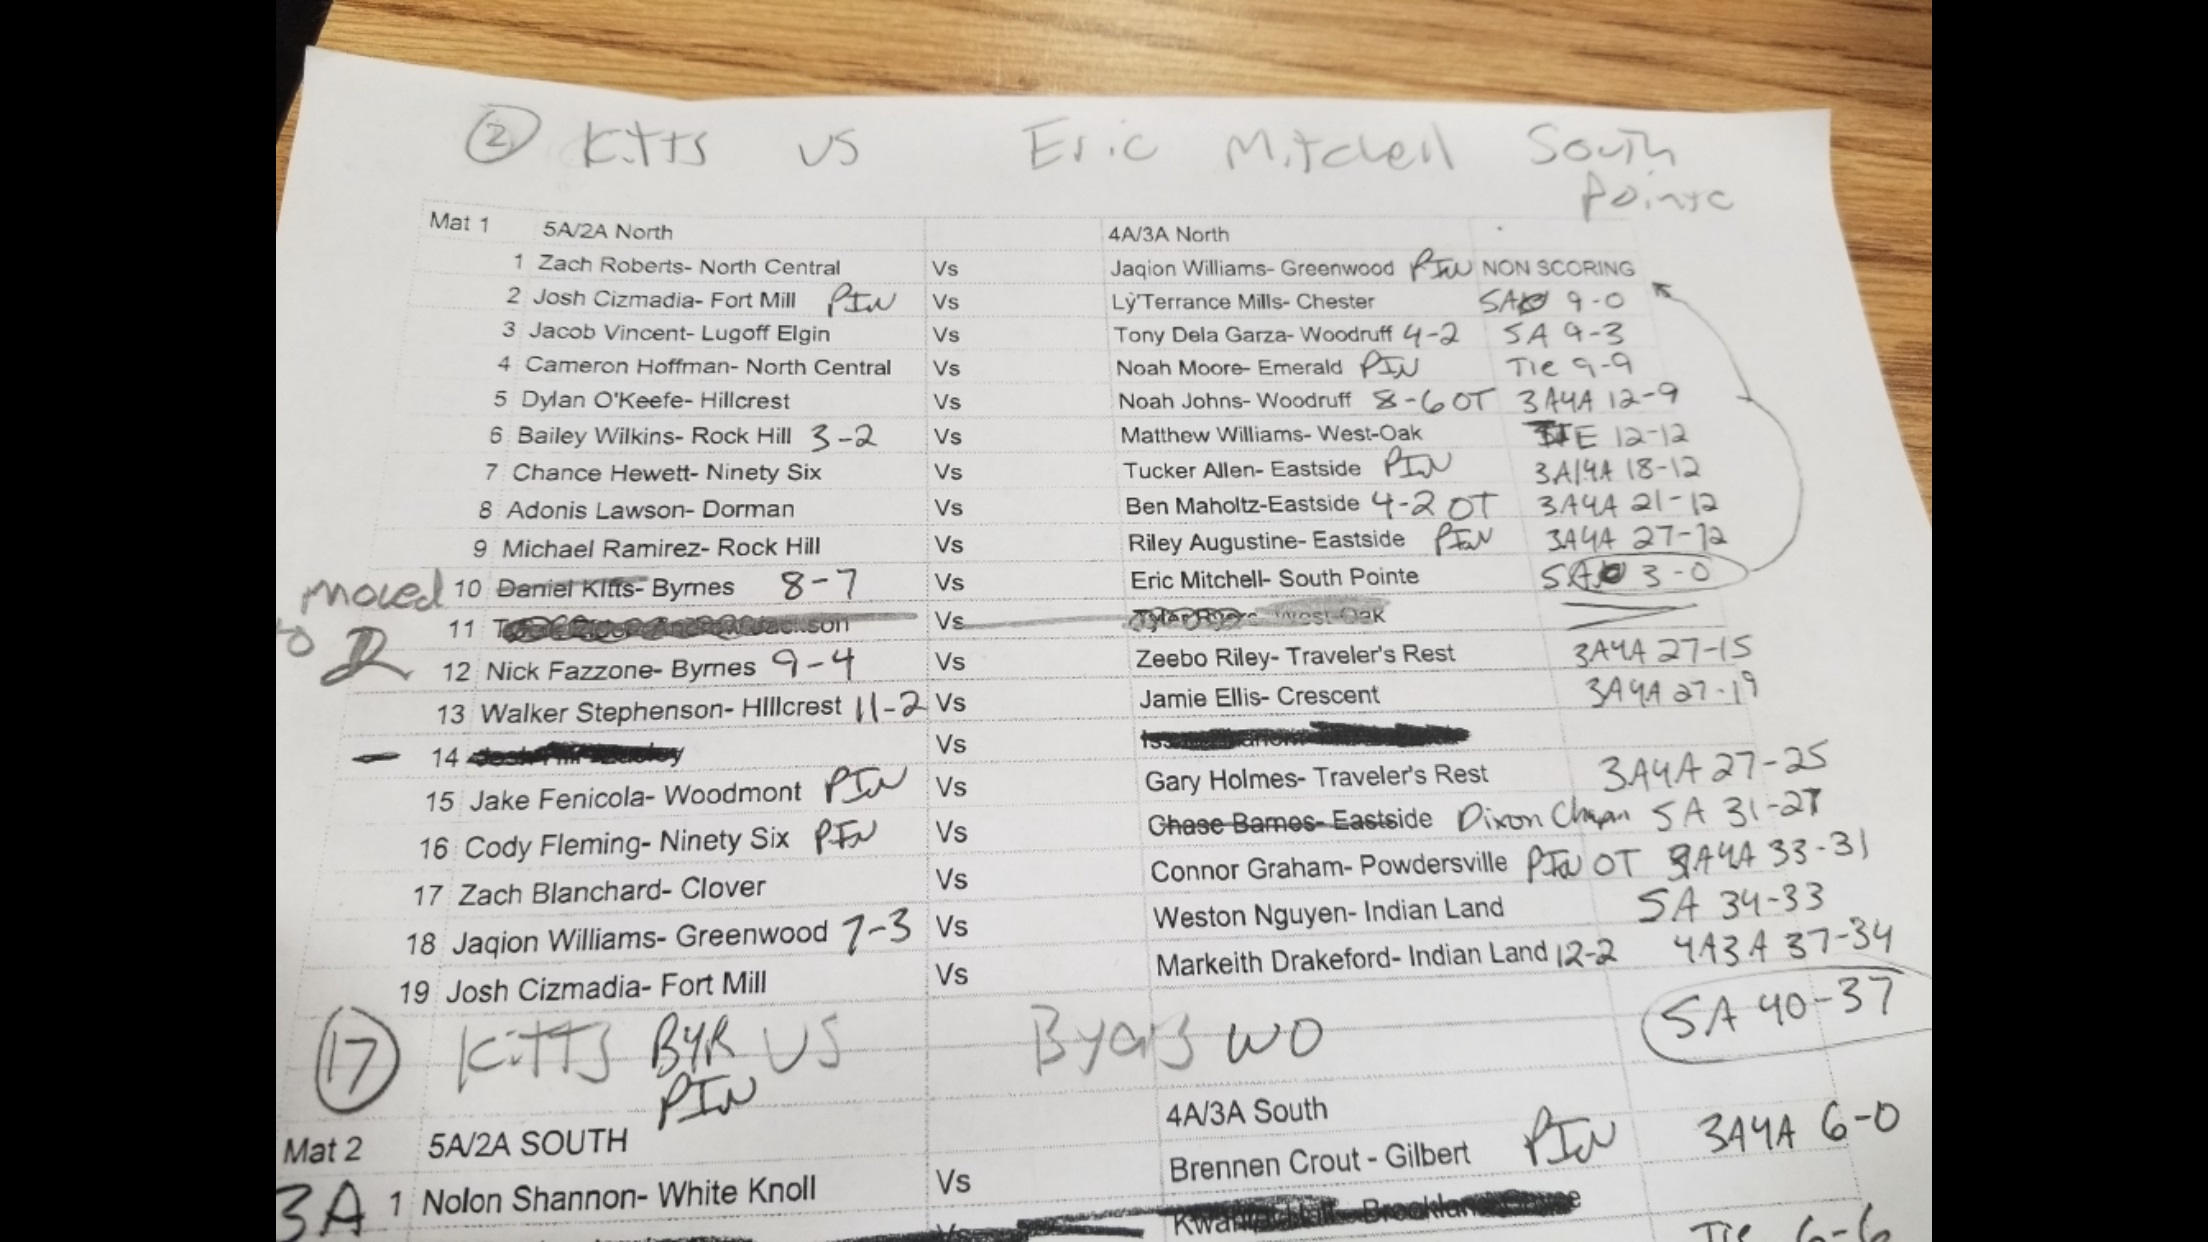 2 Kitts VS Eric Mitchell South
Pointe
Mat 1 5A/2A North 4A/3A North
1 Zach Roberts- North Central Vs Jaqion Williams- Greenwood PIN NON SCORING
2 Josh Cizmadia- Fort Mill PIN Vs Ly'Terrance Mills- Chester 5A 9-0
3 Jacob Vincent- Lugoff Elgin Vs Tony Dela Garza- Woodruff 4-2 5A 9-3
4 Cameron Hoffman- North Central Vs Noah Moore- Emerald PIN Tie 9-9
5 Dylan O'Keefe- Hillcrest Vs Noah Johns- Woodruff 8-6 OT 3A4A 12-9
6 Bailey Wilkins- Rock Hill 3-2 Vs Matthew Williams- West-Oak TIE 12-12
7 Chance Hewett- Ninety Six Vs Tucker Allen- Eastside PIN 3A/4A 18-12
8 Adonis Lawson- Dorman Vs Ben Maholtz-Eastside 4-2 OT 3A4A 21-12
9 Michael Ramirez- Rock Hill Vs Riley Augustine- Eastside PIN 3A4A 27-12
moved 10 Daniel Kitts- Byrnes 8-7 Vs Eric Mitchell- South Pointe 5A 3-0
to 2 11 Vs West-Oak
12 Nick Fazzone- Byrnes 9-4 Vs Zeebo Riley- Traveler's Rest 3A4A 27-15
13 Walker Stephenson- HIllcrest 11-2 Vs Jamie Ellis- Crescent 3A4A 27-19
14 Vs
15 Jake Fenicola- Woodmont PIN Vs Gary Holmes- Traveler's Rest 3A4A 27-25
16 Cody Fleming- Ninety Six PIN Vs Chase Barnes- Eastside Dixon 5A 31-27
17 Zach Blanchard- Clover Vs Connor Graham- Powdersville PIN OT 3A4A 33-31
18 Jaqion Williams- Greenwood 7-3 Vs Weston Nguyen- Indian Land 5A 34-33
19 Josh Cizmadia- Fort Mill Vs Markeith Drakeford- Indian Land 12-2 4A3A 37-34
17 Kitts BYR VS Byars WO 5A 40-37
PIN
Mat 2 5A/2A SOUTH 4A/3A South
3A 1 Nolon Shannon- White Knoll Vs Brennen Crout - Gilbert PIN 3A4A 6-0
Vs Tie 6-6